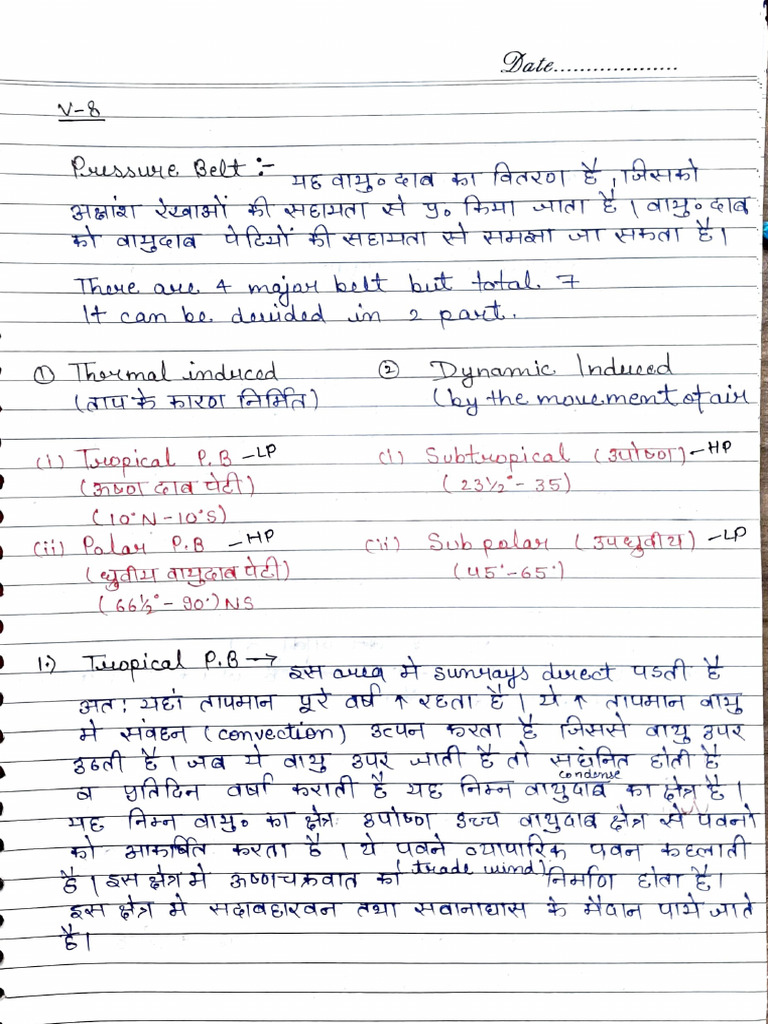 Date...................
V-8
Pressure Belt :- यह वायु० दाब का वितरण है, जिसको
अक्षांश रेखाओं की सहायता से प्र० किया जाता है। वायु० दाब
को वायुदाब पेटियों की सहायता से समझा जा सकता है।
There are 4 major belt but total 7
It can be devided in 2 part.
① Thermal induced ② Dynamic Induced
(ताप के कारण निर्मित) (by the movement of air
(i) Tropical P.B - LP (i) Subtropical (उपोष्ण) - HP
(ऊष्ण दाब पेटी) (23½° - 35)
(10°N - 10°S)
(ii) Polar P.B - HP (ii) Sub polar (उपध्रुवीय) - LP
(ध्रुवीय वायुदाब पेटी) (45° - 65°)
(66½° - 90°) NS
1.) Tropical P.B → इस area मे sunrays direct पडती है
अत: यहां तापमान पूरे वर्ष ↑ रहता है। ये ↑ तापमान वायु
मे संवहन (convection) उत्पन करता है जिससे वायु उपर
उठती है। जब ये वायु उपर जाती है तो संघनित होती है
condense
व प्रतिदिन वर्षा कराती है यह निम्न वायुदाब का क्षेत्र है।
यह निम्न वायु० का क्षेत्र उपोष्ण उच्च वायुदाब क्षेत्र से पवनो
को आकर्षित करता है। ये पवने व्यापारिक पवन कहलाती
है। इस क्षेत्र मे ऊष्णचक्रवात का (trade wind) निर्माण होता है।
इस क्षेत्र मे सदाबहारवन तथा सवानाघास के मैदान पाये जाते
है।